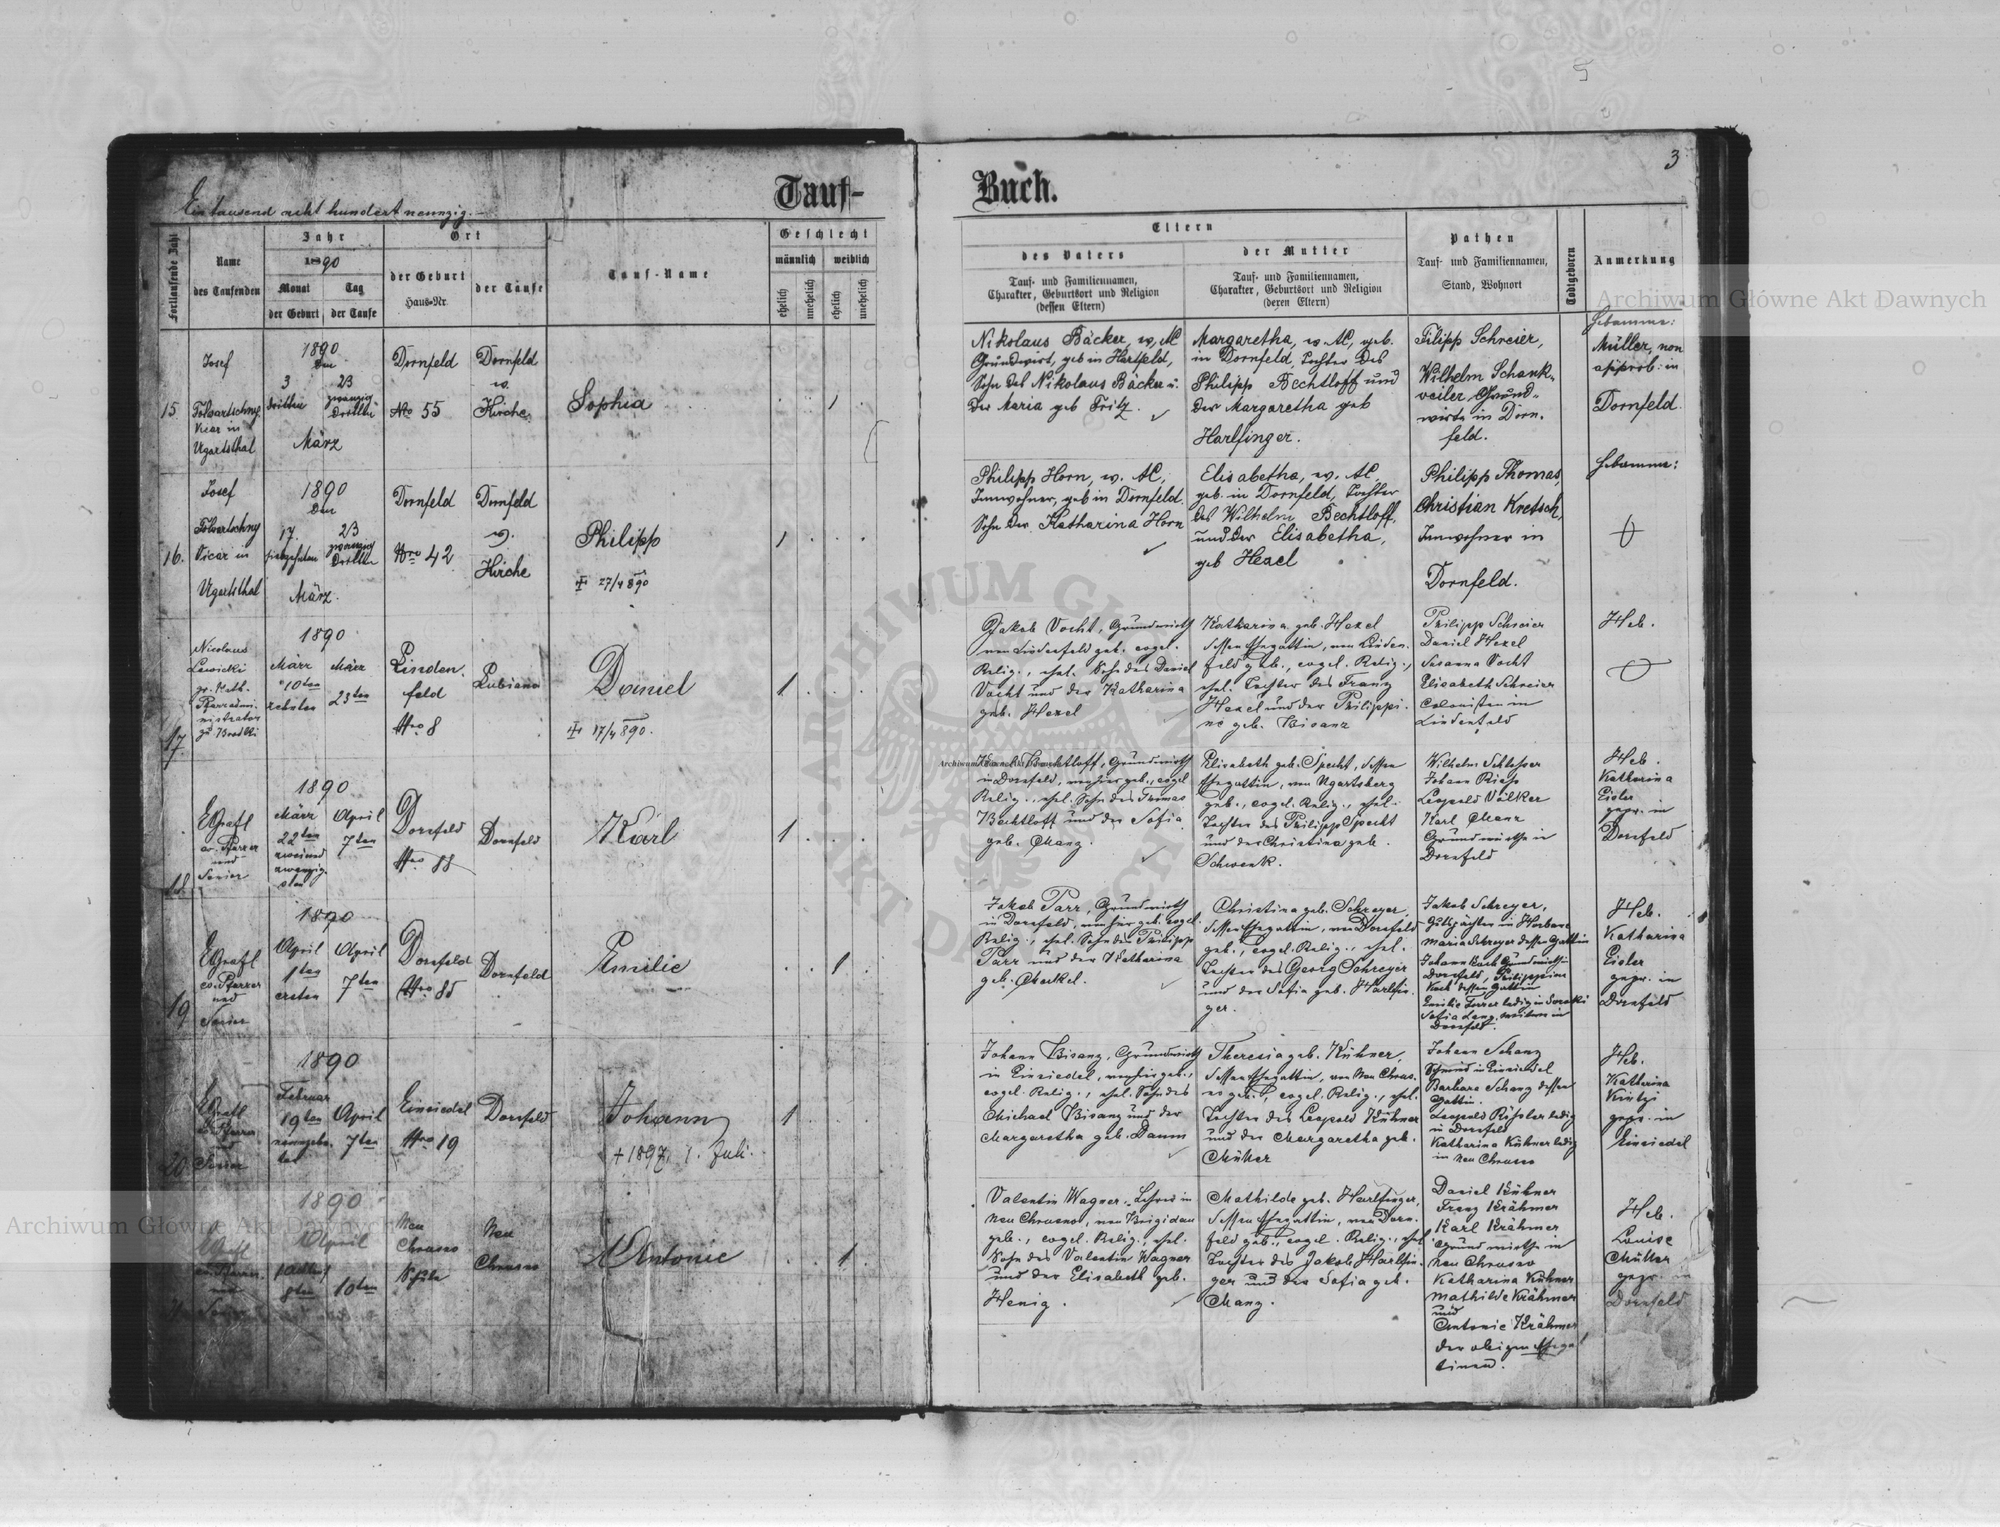 3
Tauf-
Buch.
Ein tausend acht hundert neunzig.
Fortlaufende Zahl
Name
des Taufenden
Jahr
1890
Monat
der Geburt
Tag
der Taufe
Ort
der Geburt
Haus-Nr.
der Taufe
Tauf-Name
Geschlecht
männlich
weiblich
ehelich
unehelich
ehelich
unehelich
Eltern
des Vaters
Tauf- und Familiennamen,
Charakter, Geburtsort und Religion
(dessen Eltern)
der Mutter
Tauf- und Familiennamen,
Charakter, Geburtsort und Religion
(deren Eltern)
Pathen
Tauf- und Familiennamen,
Stand, Wohnort
Todtgeboren
Anmerkung
15
Josef
Folwartschny
Vicar in
Ugartsthal
1890
Den
3
dritten
23
zwanzig
dritten
März
Dornfeld
No 55
Dornfeld
Kirche
Sophia
1
Nikolaus Bäcker, ev. AC
Grundwirt, geb in Hartfeld,
Sohn des Nikolaus Bäcker u.
der Maria geb Fritz.
Margaretha, ev. AC, geb.
in Dornfeld, Tochter des
Philipp Bechtloff und
der Margaretha geb
Harlfinger.
Filipp Schreier,
Wilhelm Schank-
weiler, Grund-
wirte in Dorn-
feld.
Hebamme:
Müller, non
approb: in
Dornfeld.
16.
Josef
Folwartschny
Vicar in
Ugartsthal
1890
Den
17.
siebzehnten
23
zwanzig
dritten
März.
Dornfeld
Nro 42
Dornfeld
Kirche
Philipp
27/4 890
1
Philipp Horn, ev. AC,
Innwohner, geb in Dornfeld
Sohn der Katharina Horn
Elisabetha, ev. AC,
geb. in Dornfeld, Tochter
des Wilhelm Bechtloff,
und der Elisabetha,
geb Hexel
Philipp Thomas,
Christian Kretsch,
Innwohner in
Dornfeld.
Hebamme:
17.
Nicolaus
Lewicki
gr. Kath.
Pfarradmi-
nistrator
zu Brodki
1890
März
10ten
zehnten
März
23ten
Linden-
feld
Nro 8
Lubiana
Daniel
17/4 890.
1
Jakob Vocht, Grundwirth
von Lindenfeld geb. evgel.
Relig., ehel. Sohn des Daniel
Vocht und der Katharina
geb. Hexel
Katharina geb. Hexel
dessen Ehegattin, von Linden-
feld geb., evgel. Relig.,
ehel. Tochter des Franz
Hexel und der Philippi-
ne geb. Bisanz
Philipp Schreier
Daniel Hexel
Susanna Vocht
Elisabeth Schreier
Colonisten in
Lindenfeld
Heb.
18.
EGrafl
ev. Pfarrer
und
Senior
1890
März
22ten
zweiund
zwanzig-
sten
April
7ten
Dornfeld
Nro 88
Dornfeld
Karl
1
Bechtloff, Grundwirth
in Dornfeld, von hier geb., evgel
Relig., ehel. Sohn des Thomas
Bechtloff und der Sofia
geb. Manz.
Elisabeth geb. Specht, dessen
Ehegattin, von Ugartsberg
geb., evgel. Relig., ehel.
Tochter des Philipp Specht
und der Christina geb.
Schwenk.
Wilhelm Schlosser
Johann Riess
Leopold Völker
Karl Manz
Grundwirthe in
Dornfeld
Heb.
Katharina
Eisler
gepr. in
Dornfeld
19
EGrafl
ev. Pfarrer
und
Senior
1890
April
1ten
ersten
April
7ten
Dornfeld
Nro 85
Dornfeld
Emilie
1
Jakob Parr, Grundwirth
in Dornfeld, von hier geb. evgel.
Relig., ehel. Sohn des Philipp
Parr und der Katharina
geb. Merkel.
Christina geb. Schreyer,
dessen Ehegattin, von Dornfeld
geb., evgel. Relig., ehel.
Tochter des Georg Schreyer
und der Sofia geb. Harlfin-
ger.
Jakob Schreyer,
Maria Schreyer dessen Gattin
Dornfeld, Philippine
Koch dessen Gattin
Dornfeld.
Heb.
Katharina
Eisler
gepr. in
Dornfeld
20.
EGrafl
ev. Pfarrer
Senior
1890
Februar
19ten
neunzehn-
ten
April
7ten
Einsiedel
Nro 19
Dornfeld
Johann
+ 1897, 1. Juli.
1
Johann Bisanz, Grundwirth
in Einsiedel, von hier geb.,
evgel. Relig., ehel. Sohn des
Michael Bisanz und der
Margaretha geb. Daum
Theresia geb. Kühner,
dessen Ehegattin, von Neu Chrus-
no geb., evgel. Relig., ehel.
Tochter des Leopold Kühner
und der Margaretha geb.
Müller
Johann Schanz
Schmied in Einsiedel
Barbara Schanz dessen
Gattin.
Leopold Rissler ledig
in Dornfeld
Katharina Kühner ledig
in Neu Chrusno
Heb.
Katharina
Kintzi
gepr. in
Einsiedel
EGrafl
ev. Pfarrer
und
Senior
1890
April
8ten
10ten
Neu
Chrusno
Schule
Neu
Chrusno
Antonie
1
Valentin Wagner, Lehrer in
Neu Chrusno, von Brigidau
geb., evgel. Relig., ehel.
Sohn des Valentin Wagner
und der Elisabeth geb.
Henig.
Mathilde geb. Harlfinger,
dessen Ehegattin, von Dorn-
feld geb., evgel. Relig., ehel
Tochter des Jakob Harlfin-
ger und der Sofia geb.
Manz.
Daniel Kühner
Franz Krähmer
Karl Krähmer
Grundwirthe in
Neu Chrusno
Katharina Kühner
Mathilde Krähmer
und
Antonie Krähmer
der obigen Ehegat
tinen.
Heb.
Louise
Müller
gepr. in
Dornfeld
Archiwum Główne Akt Dawnych
Archiwum Główne Akt Dawnych
ARCHIWUM GŁÓWNE AKT DAWNYCH